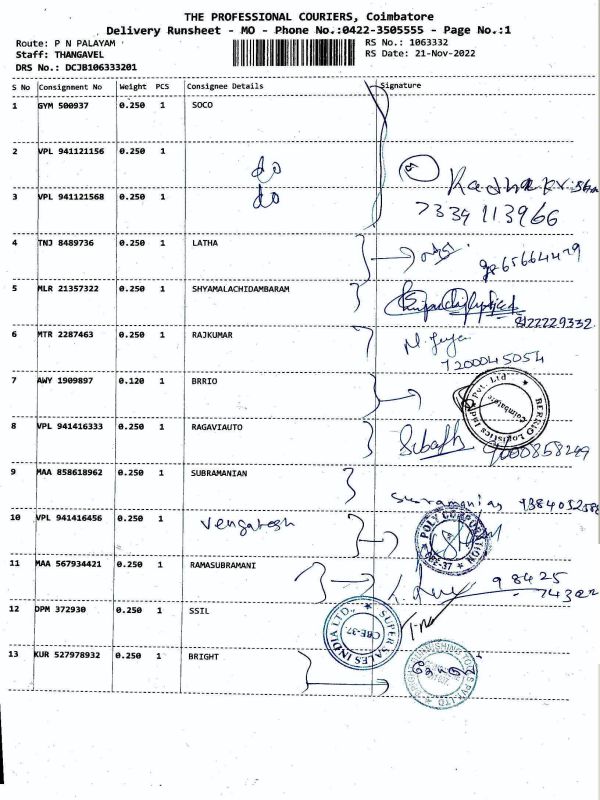 THE PROFESSIONAL COURIERS, Coimbatore
Delivery Runsheet - MO - Phone No.:0422-3505555 - Page No.:1
Route: P N PALAYAM
RS No.: 1063332
Staff: THANGAVEL
RS Date: 21-Nov-2022
DRS No.: DCJB106333201
S No Consignment No Weight PCS Consignee Details Signature
1 GYM 500937 0.250 1 SOCO
2 VPL 941121156 0.250 1 do
3 VPL 941121568 0.250 1 do
7339113966
4 TNJ 8489736 0.250 1 LATHA
5 MLR 21357322 0.250 1 SHYAMALACHIDAMBARAM
8122229332
6 MTR 2287463 0.250 1 RAJKUMAR
7200045054
7 AWY 1909897 0.120 1 BRRIO
BERRIO Logistics India Pvt. Ltd Coimbatore
8 VPL 941416333 0.250 1 RAGAVIAUTO
9 MAA 858618962 0.250 1 SUBRAMANIAN
10 VPL 941416456 0.250 1 Vengatesh
POLY CORPORATION CBE-37
11 MAA 567934421 0.250 1 RAMASUBRAMANI
98425
12 DPM 372930 0.250 1 SSIL
SUPER SALES INDIA LTD., CBE-37.
13 KUR 527978932 0.250 1 BRIGHT